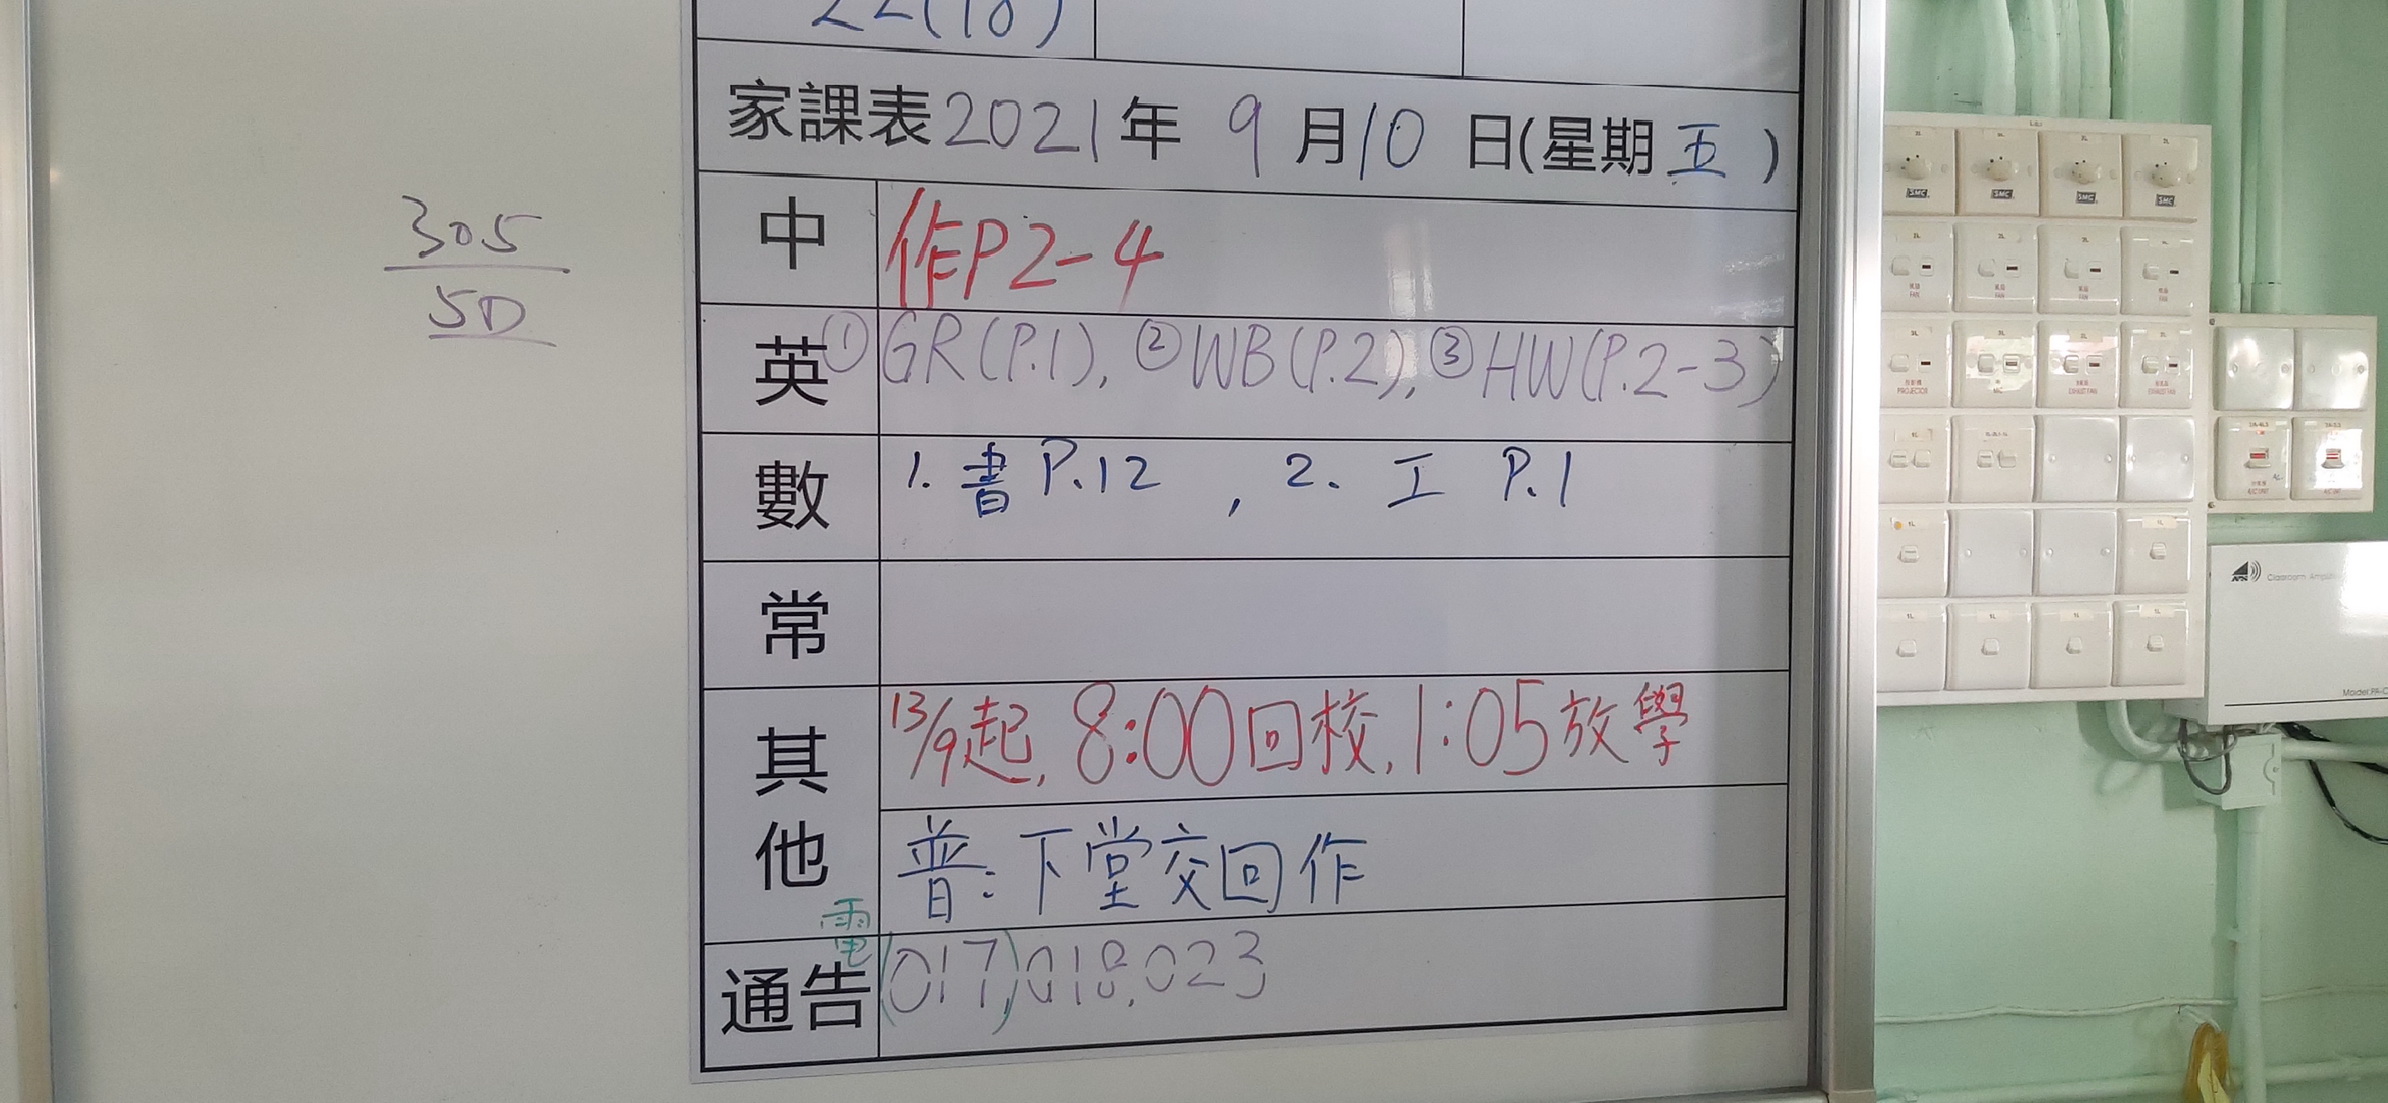 22(18)
家課表2021年 9月10日(星期五)
305
5D
中 作P2-4
英 ①GR(P.1), ②WB(P.2), ③HW(P.2-3)
數 1. 書 P.12 , 2. 工 P.1
常
其他 13/9起, 8:00回校, 1:05放學
普: 下堂交回作
通告 電(017,)018,023
SMC SMC SMC SMC
FAN FAN FAN FAN
PROJECTOR MIC EXHAUST FAN EXHAUST FAN
Classroom Amplifier